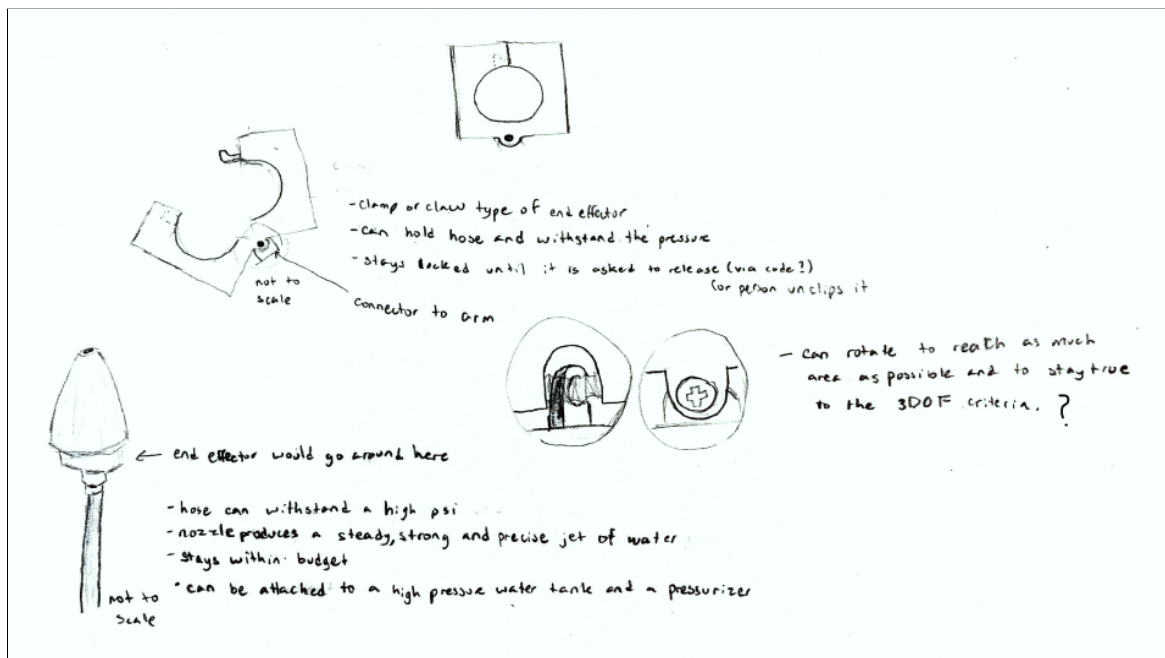 - clamp or claw type of end effector
- can hold hose and withstand the pressure
- stays locked until it is asked to release (via code?)
(or person unclips it
not to
scale
connector to arm
- can rotate to reach as much
area as possible and to stay true
to the 3DOF criteria. ?
← end effector would go around here
- hose can withstand a high psi
- nozzle produces a steady, strong and precise jet of water
- stays within budget
• can be attached to a high pressure water tank and a pressurizer
not to
scale